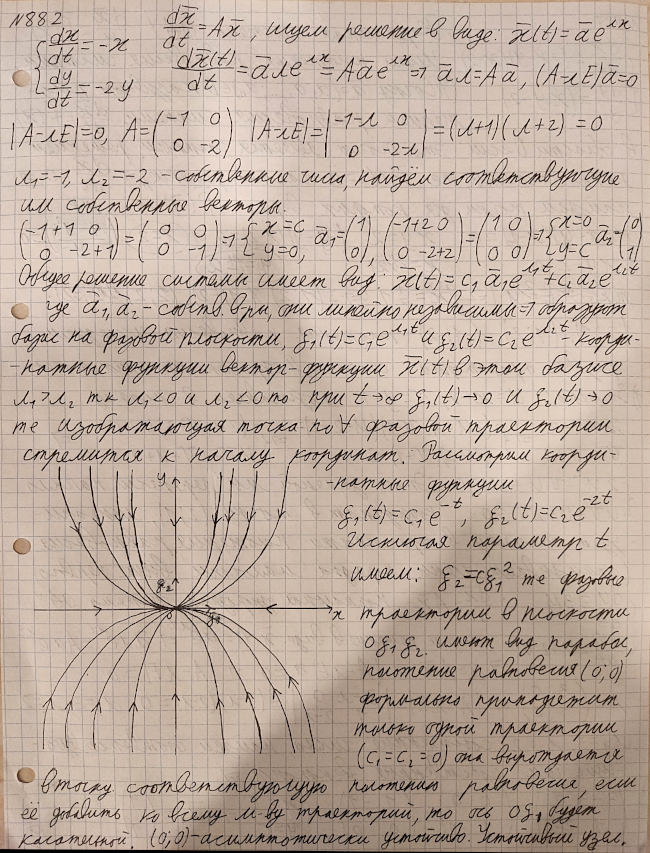 №882
{dx/dt = -x
dy/dt = -2y
dx̄/dt = Ax̄, ищем решение в виде: x̄(t) = āe^λx
dx̄(t)/dt = āλe^λx = Aāe^λx ⇒ āλ = Aā, (A-λE)ā=0
|A-λE|=0, A=(-1 0; 0 -2) |A-λE|=|-1-λ 0; 0 -2-λ| = (λ+1)(λ+2) = 0
λ₁=-1, λ₂=-2 - собственные числа, найдём соответствующие
им собственные векторы.
(-1+1 0; 0 -2+1)=(0 0; 0 -1)⇒{x=c; y=0, ā₁=(1; 0), (-1+2 0; 0 -2+2)=(1 0; 0 0)⇒{x=0; y=c ā₂=(0; 1)
Общее решение системы имеет вид: x̄(t)=c₁ā₁e^λ₁t+c₂ā₂e^λ₂t
где ā₁, ā₂ - собств. в-ры, они линейно независимы ⇒ образуют
базис на фазовой плоскости, ξ₁(t)=c₁e^λ₁t и ξ₂(t)=c₂e^λ₂t - коорди-
-натные функции вектор-функции x̄(t) в этом базисе
λ₁>λ₂ тк λ₁<0 и λ₂<0 то при t→∞ ξ₁(t)→0 и ξ₂(t)→0
те изображающая точка по ∀ фазовой траектории
стремится к началу координат. Рассмотрим коорди-
-натные функции
ξ₁(t)=c₁e^-t, ξ₂(t)=c₂e^-2t
Исключая параметр t
имеем: ξ₂=cξ₁² те фазовые
траектории в плоскости
Oξ₁ξ₂ имеют вид парабол,
положение равновесия (0;0)
формально принадлежит
только одной траектории
(c₁=c₂=0) она вырождается
в точку соответствующую положению равновесия, если
её добавить ко всему м-ву траекторий, то ось Oξ₁ будет
касательной. (0;0)-асимптотически устойчиво. Устойчивый узел.
y
ξ₂
0
ξ₁
x